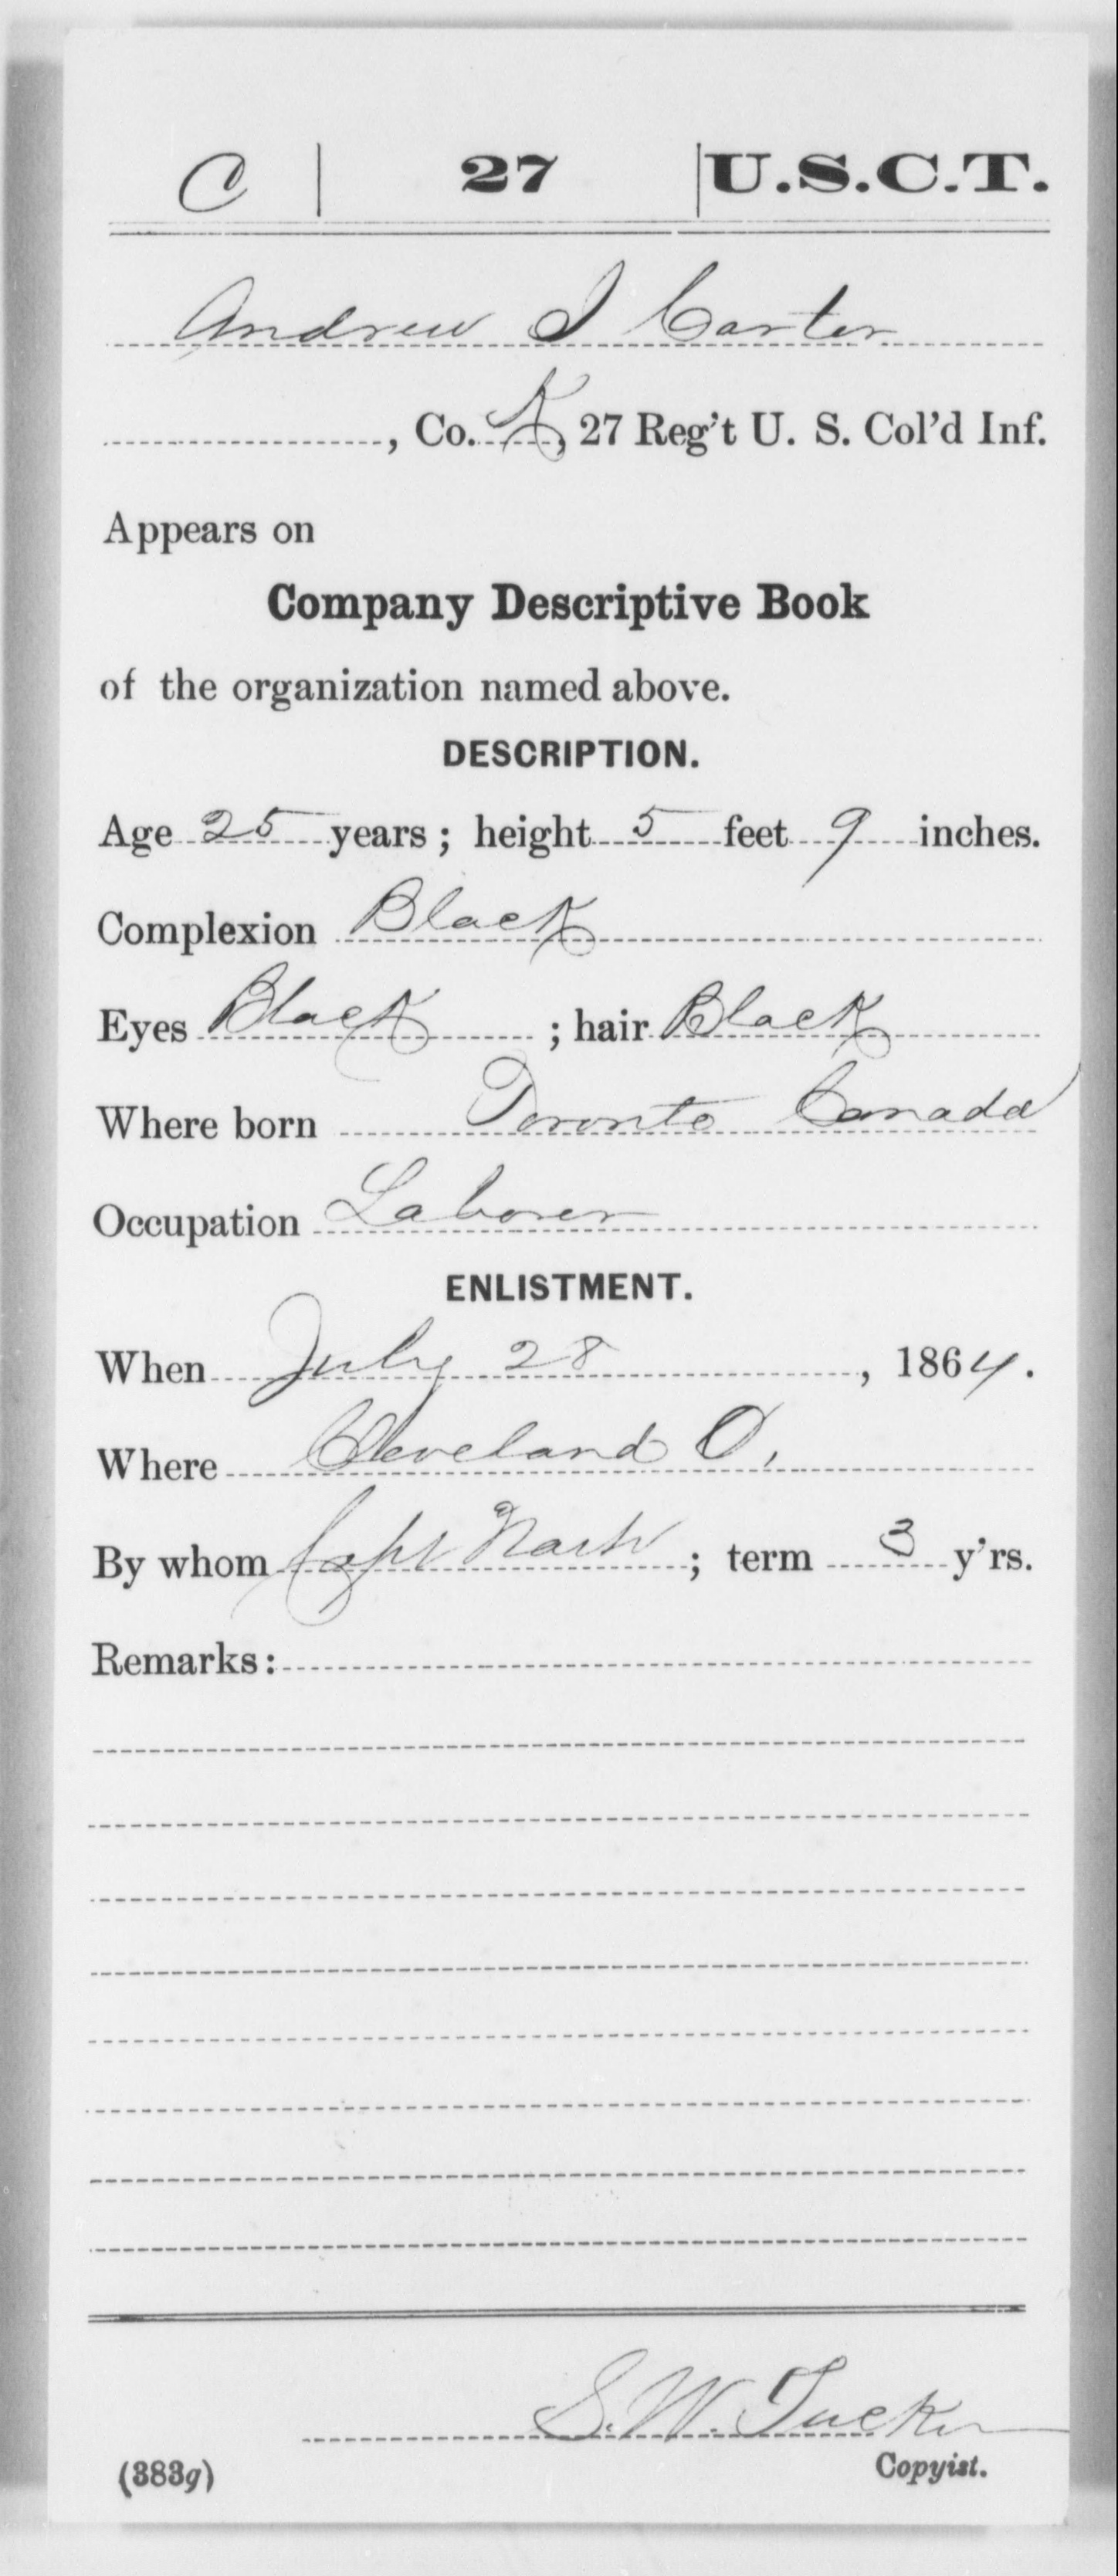 C | 27 | U.S.C.T.
Andrew J Carter
, Co. K, 27 Reg't U. S. Col'd Inf.
Appears on
Company Descriptive Book
of the organization named above.
DESCRIPTION.
Age 25 years; height 5 feet 9 inches.
Complexion Black
Eyes Black; hair Black
Where born Toronto Canada
Occupation Laborer
ENLISTMENT.
When July 28, 1864.
Where Cleveland O.
By whom Capt Nash; term 3 y'rs.
Remarks:
S. W. Tucker
(383g) Copyist.